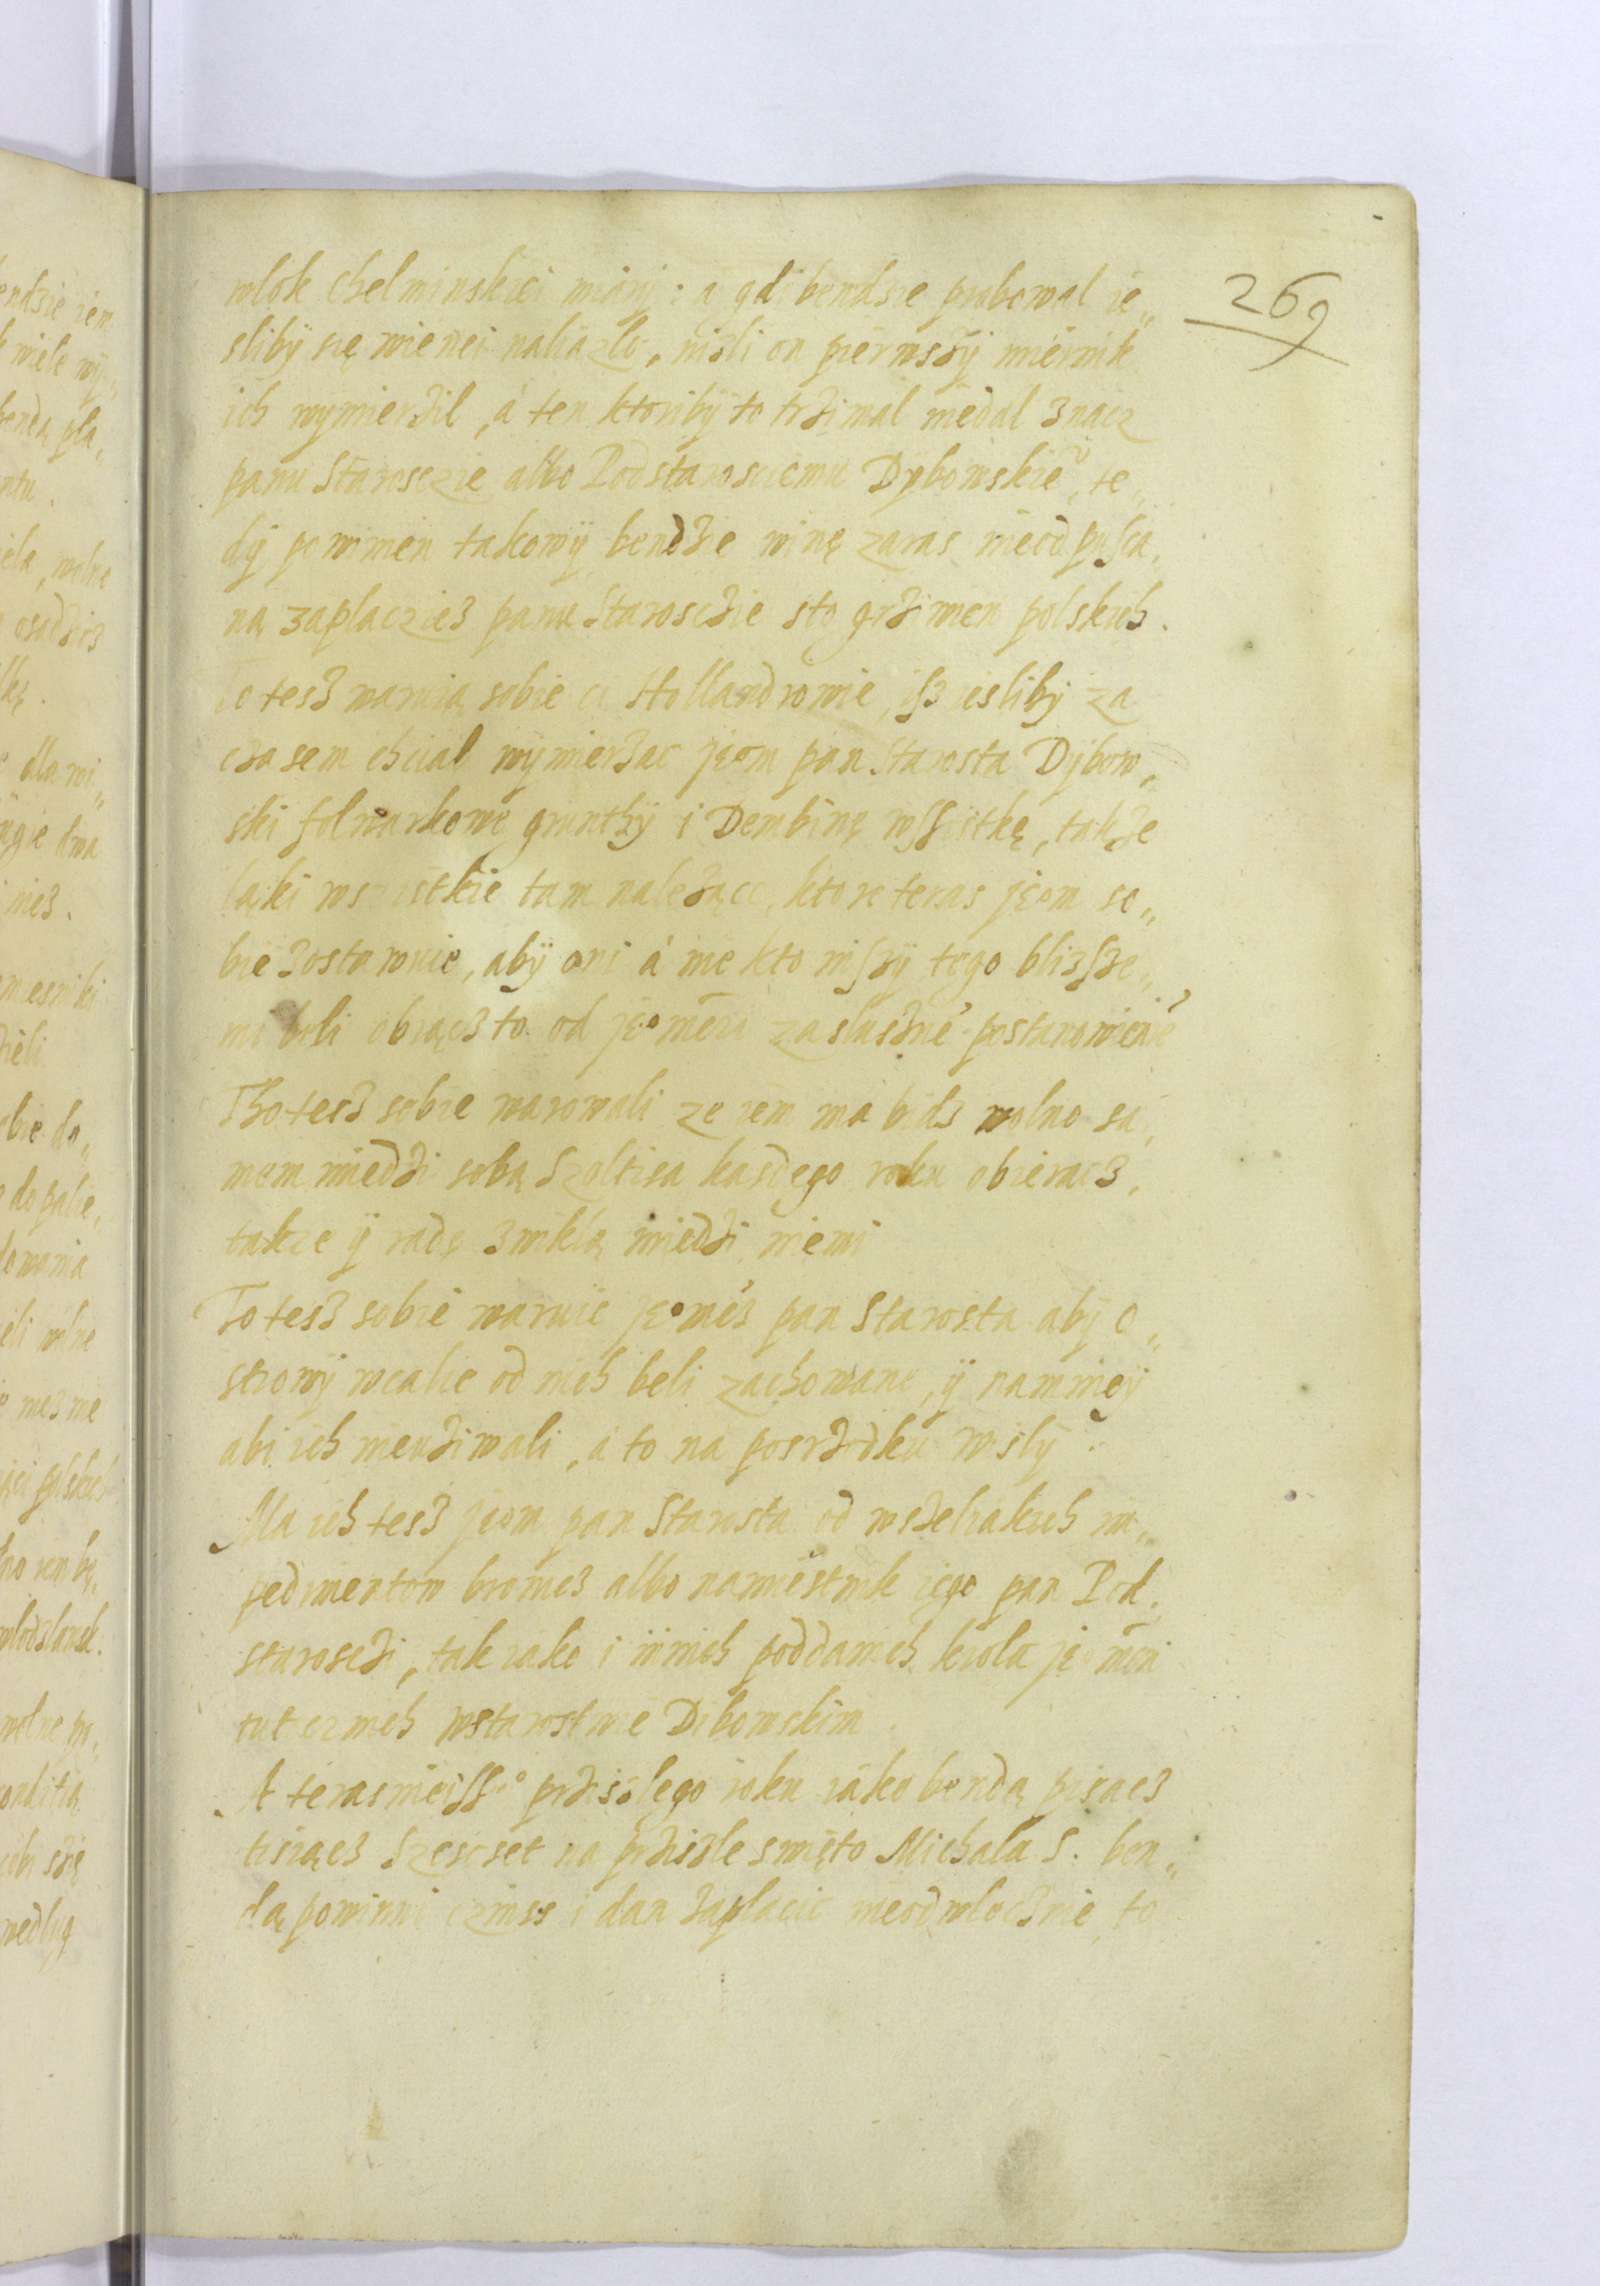 269
wlok Chelminskiei miary: a gdi bendzie probowal ie„
slibÿ się wienei naliazlo, nizli on pierwszÿ miernik
ich wymierzil, á ten ktoribÿ to trzimal niedal znacz
panu Starosczie albo Podstarosciemu Dybowskie͛, te„
dÿ powinien takowÿ bendzie winę zaras nieodpusća,
ną zaplaczicz panu Starosczie sto grziwen polskich.
To tesz waruią sobie ci Hollandrowie, isz iesliby za
czasem chcial wymierzac jeom pan Starosta Dÿbow„
ski folwarkowe gruntÿ i Dembinę wssistkę, takze
ląki wszistkie tam nalezące, ktore teras jeom so„
bie zostawuie, abÿ oni á nie kto inszÿ tego blizsze„
mi beli obiącz to od jeomēci za slusznē postanowieniē
Tho tesz sobie warowali ze iem ma bidz wolno sa„
mem miedzi sobą Szoltisa kasdego roku obieracz,
takze ÿ radę zwiklą miedzi niemi
To tesz sobie waruie jeomēz pan Starosta abÿ o„
strowÿ wcalie od nich beli zachowane, ÿ namniey
abi ich nieuziwali, á to na posrzodku wislÿ.
Ma ich tesz jeom pan Starosta od wszeliakich im„
pedimentow bronicz albo namiestnik iego pan Pod„
starosczi, tak iako i innich poddanich krola jeo mēci
tuteiznich wstarostwie Dibowskim
A terasnieiss° prziszlego roku iako bendą pisacz
tisiącz szescset na prziszle swięto Michala S. ben„
dą powinni czinss i dan zaplacic nieodwlocznie, to